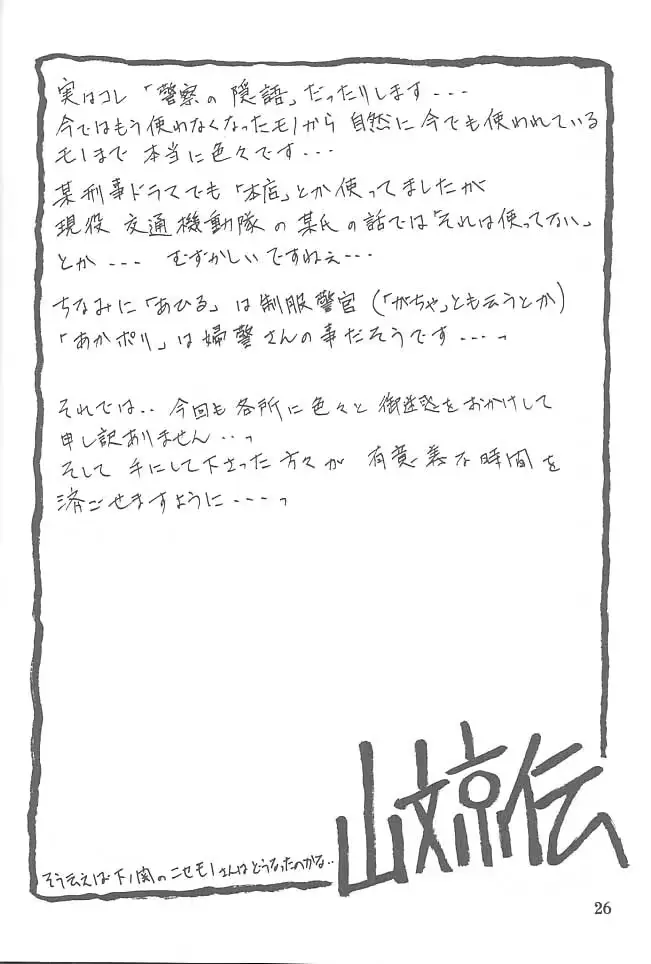 実はコレ「警察の隠語」だったりします---
今ではもう使わなくなったモノから 自然に今でも使われている
モノまで 本当に色々です---
某刑事ドラマでも「本店」とか使ってましたが
現役 交通機動隊の某氏の話では「それは使ってない」
とか --- むずかしいですねぇ---
ちなみに「あひる」は制服警官(「がちゃ」とも云うとか)
「あかポリ」は婦警さんの事だそうです---っ
それでは.. 今回も各所に色々と御迷惑をおかけして
申し訳ありません..っ
そして 手にして下さった方々が 有意義な時間を
済ごせますように---っ
そう云えば下ノ関のニセモノさんはどうなったのかな..
山文京伝
26